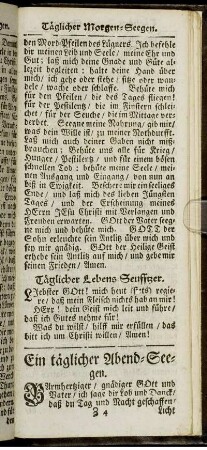 Täglicher Morgen-Seegen.
den Mord-Pfeilen des Lügners. Ich befehle
dir meinen Leib und Seele/ meine Ehr und
Gut; laß mich deine Gnade und Güte all-
zeit begleiten; halte deine Hand über
mich/ ich gehe oder stehe/ sitze oder wan-
dele/ wache oder schlaffe. Behüte mich
für den Pfeilen/ die des Tages fliegen/
für der Pestilentz/ die im Finstern schlei-
chet/ für der Seuche/ die im Mittage ver-
derbet. Seegne meine Nahrung/ gib mir/
was dein Wille ist/ zu meiner Nothdurfft.
Laß mich auch deiner Gaben nicht miß-
brauchen; Behüte uns alle für Krieg/
Hunger/ Pestilentz/ und für einem bösen
schnellen Tod; behüte meine Seele/ mei-
nen Ausgang und Eingang/ von nun an
biß in Ewigkeit. Beschere mir ein seeliges
Ende/ und laß mich des lieben Jüngsten
Tages/ und der Erscheinung meines
HErrn JEsu Christi mit Verlangen und
Freuden erwarten. GOtt der Vater seegne
mich und behüte mich. GOTT der
Sohn erleuchte sein Antlitz über mich und
sey mir gnädig. GOtt der Heilige Geist
erhebe sein Antlitz auf mich/ und gebe mir
seinen Frieden/ Amen.
Täglicher Lebens Seufftzer.
Liebster GOtt! mich heut
re/ daß mein Fleisch nichts hab an mir!
HErr! dein Geist mich leit und führe/
daß ich Gutes nehme für!
Was du wilst/ hilff mir erfüllen/ das
bitt ich um Christi willen/ Amen!
Ein täglicher Abend-See-
gen.
Barmhertziger/ gnädiger GOtt und
Vater/ ich sage dir Lob und Danck/
daß du Tag und Nacht geschaffen/
Z 4 Licht